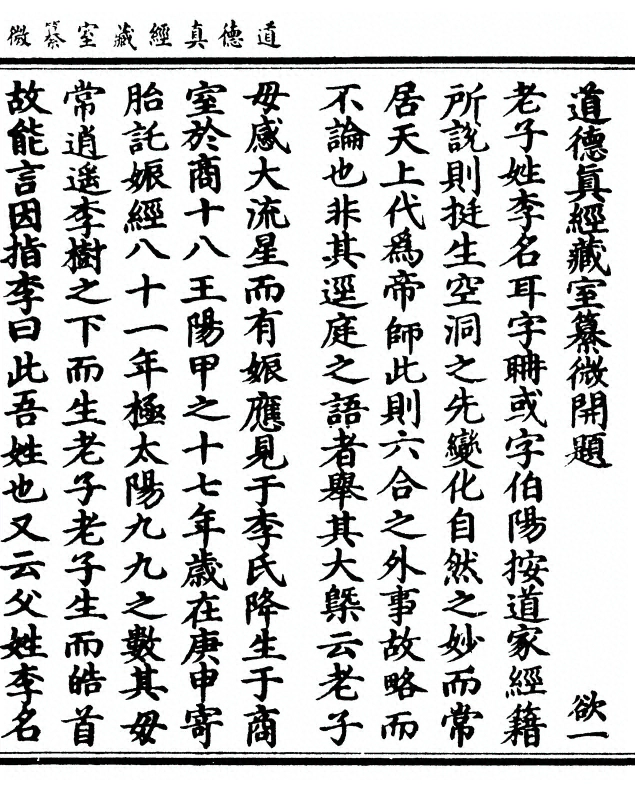 道德真經藏室纂微
道德眞經藏室纂微開題 欲一
老子姓李名耳字聃或字伯陽按道家經籍
所說則挺生空洞之先變化自然之妙而常
居天上代爲帝師此則六合之外事故略而
不論也非其逕庭之語者舉其大槩云老子
母感大流星而有娠應見于李氏降生于商
室於商十八王陽甲之十七年歲在庚申寄
胎託娠經八十一年極太陽九九之數其母
常逍遙李樹之下而生老子老子生而皓首
故能言因指李曰此吾姓也又云父姓李名